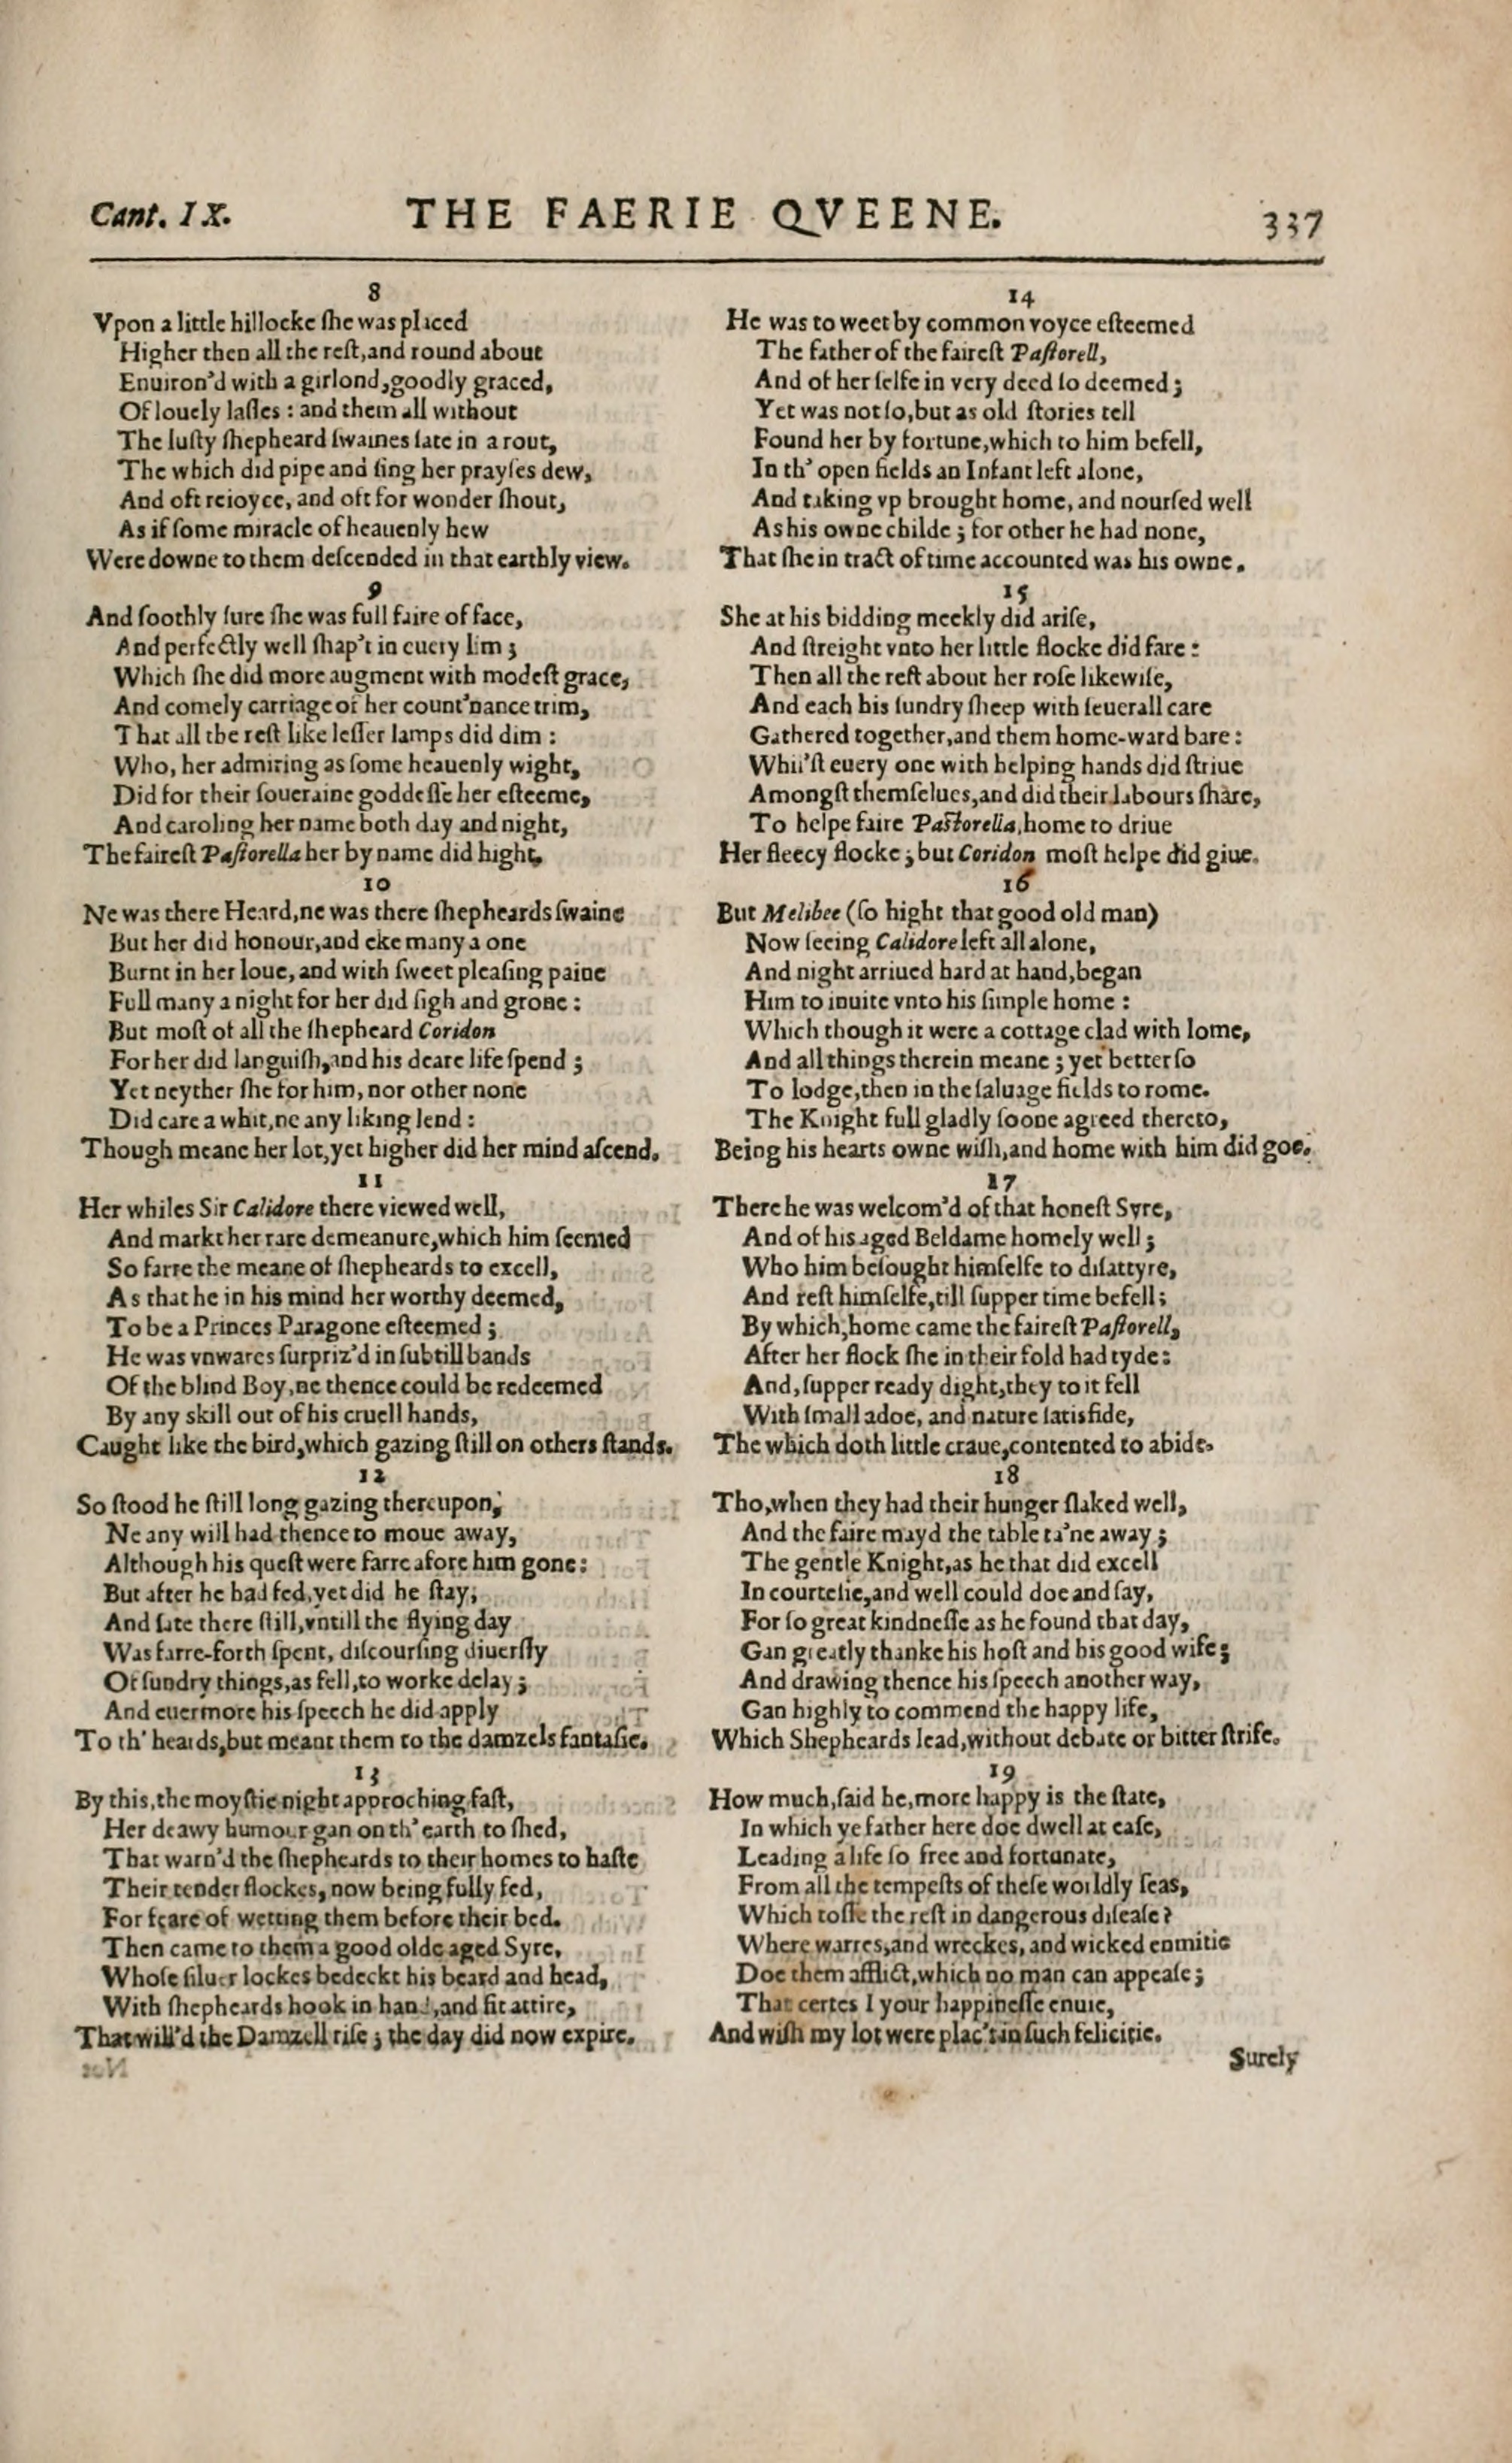 Cant. IX. THE FAERIE QVEENE. 337
8
Vpon a little hillocke ſhe was placed
Higher then all the reſt, and round about
Enuiron'd with a girlond, goodly graced,
Of louely laſſes : and them all without
The luſty ſhepheard ſwaines ſate in a rout,
The which did pipe and ſing her prayſes dew,
And oft reioyce, and oft for wonder ſhout,
As if ſome miracle of heauenly hew
Were downe to them deſcended in that earthly view.
9
And ſoothly ſure ſhe was full faire of face,
And perfectly well ſhap't in euery lim ;
Which ſhe did more augment with modeſt grace,
And comely carriage of her count'nance trim,
That all the reſt like leſſer lamps did dim :
Who, her admiring as ſome heauenly wight,
Did for their ſoueraine goddeſſe her eſteeme,
And caroling her name both day and night,
The faireſt Paſtorella her by name did hight.
10
Ne was there Heard, ne was there ſhepheards ſwaine
But her did honour, and eke many a one
Burnt in her loue, and with ſweet pleaſing paine
Full many a night for her did ſigh and grone :
But moſt of all the ſhepheard Coridon
For her did languiſh, and his deare life ſpend ;
Yet neyther ſhe for him, nor other none
Did care a whit, ne any liking lend :
Though meane her lot, yet higher did her mind aſcend.
11
Her whiles Sir Calidore there viewed well,
And markt her rare demeanure, which him ſeemed
So farre the meane of ſhepheards to excell,
As that he in his mind her worthy deemed,
To be a Princes Paragone eſteemed ;
He was vnwares ſurpriz'd in ſubtill bands
Of the blind Boy, ne thence could be redeemed
By any skill out of his cruell hands,
Caught like the bird, which gazing ſtill on others ſtands.
12
So ſtood he ſtill long gazing thereupon,
Ne any will had thence to moue away,
Although his queſt were farre afore him gone :
But after he had fed, yet did he ſtay,
And ſate there ſtill, vntill the flying day
Was farre-forth ſpent, diſcourſing diuerſly
Of ſundry things, as fell, to worke delay ;
And euermore his ſpeech he did apply
To th' heards, but meant them to the damzels fantaſie.
13
By this, the moyſtie night approching faſt,
Her deawy humour gan on th' earth to ſhed,
That warn'd the ſhepheards to their homes to haſte
Their tender flockes, now being fully fed,
For feare of wetting them before their bed.
Then came to them a good olde aged Syre,
Whoſe ſiluer lockes bedeckt his beard and head,
With ſhepheards hook in hand, and fit attire,
That will'd the Damzell riſe ; the day did now expire.
14
He was to weet by common voyce eſteemed
The father of the faireſt Paſtorell,
And of her ſelfe in very deed ſo deemed ;
Yet was not ſo, but as old ſtories tell
Found her by fortune, which to him befell,
In th' open fields an Infant left alone,
And taking vp brought home, and nourſed well
As his owne childe ; for other he had none,
That ſhe in tract of time accounted was his owne.
15
She at his bidding meekly did ariſe,
And ſtreight vnto her little flocke did fare :
Then all the reſt about her roſe likewiſe,
And each his ſundry ſheep with ſeuerall care
Gathered together, and them home-ward bare :
Whil'ſt euery one with helping hands did ſtriue
Amongſt themſelues, and did their labours ſhare,
To helpe faire Paſtorella, home to driue
Her fleecy flocke ; but Coridon moſt helpe did giue.
16
But Melibee (ſo hight that good old man)
Now ſeeing Calidore left all alone,
And night arriued hard at hand, began
Him to inuite vnto his ſimple home :
Which though it were a cottage clad with lome,
And all things therein meane ; yet better ſo
To lodge, then in the ſaluage fields to rome.
The Knight full gladly ſoone agreed thereto,
Being his hearts owne wiſh, and home with him did goe.
17
There he was welcom'd of that honeſt Syre,
And of his aged Beldame homely well ;
Who him beſought himſelfe to diſattyre,
And reſt himſelfe, till ſupper time befell ;
By which, home came the faireſt Paſtorell,
After her flock ſhe in their fold had tyde :
And, ſupper ready dight, they to it fell
With ſmall adoe, and nature ſatisfide,
The which doth little craue, contented to abide.
18
Tho, when they had their hunger ſlaked well,
And the faire mayd the table ta'ne away ;
The gentle Knight, as he that did excell
In courteſie, and well could doe and ſay,
For ſo great kindneſſe as he found that day,
Gan greatly thanke his hoſt and his good wife ;
And drawing thence his ſpeech another way,
Gan highly to commend the happy life,
Which Shepheards lead, without debate or bitter ſtrife.
19
How much, ſaid he, more happy is the ſtate,
In which ye father here doe dwell at eaſe,
Leading a life ſo free and fortunate,
From all the tempeſts of theſe worldly ſeas,
Which toſſe the reſt in dangerous diſeaſe ?
Where warres, and wreckes, and wicked enmitie
Doe them afflict, which no man can appeaſe ;
That certes I your happineſſe enuie,
And wiſh my lot were plac't in ſuch felicitie.
Surely